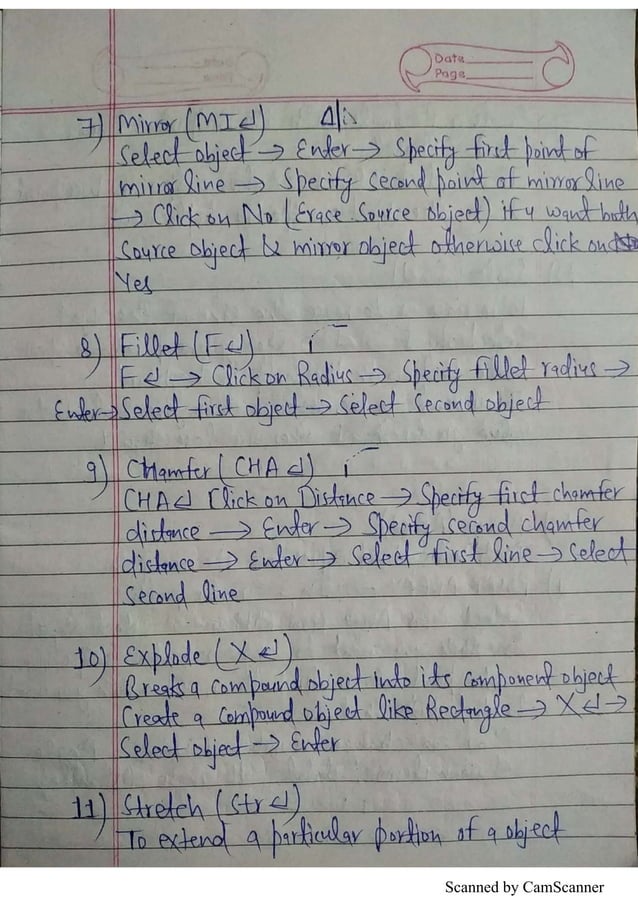 Date
Page
7) Mirror (MI↲)
Select object → Enter → Specify first point of
mirror line → Specify second point of mirror line
→ Click on No (Erase Source object) if u want both
Source object & mirror object otherwise click on
Yes
8) Fillet (F↲)
F↲ → Click on Radius → Specify fillet radius →
Enter → Select first object → Select Second object
9) Chamfer (CHA↲)
CHA↲ Click on Distance → Specify first chamfer
distance → Enter → Specify second chamfer
distance → Enter → Select first line → Select
Second line
10) Explode (X↲)
Breaks a compound object into its component object
Create a compound object like Rectangle → X↲ →
Select object → Enter
11) Stretch (Str↲)
To extend a particular portion of a object
Scanned by CamScanner